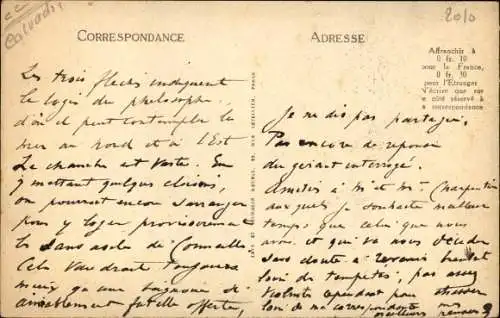 cc
Calvados
2010
CORRESPONDANCE
ADRESSE
Affranchir à
0 fr. 10
pour la France,
0 fr. 30
pour l'Étranger
N'écrire que sur
ce côté réservé à
la correspondance
Les trois flèches indiquent
le logis du philosophe
d'où il peut contempler la
mer au nord et à l'Est
La chambre est vaste. En
y mettant quelques cloisons,
on pourrait encore s'arranger
pour y loger provisoirement
les sans asiles de
Cela vaudrait toujours
mieux qu'une
fatelle offerte,
Je ne dis pas partagée.
Pas encore de réponse
du gérant interrogé.
Amitiés à Mr et Me Charpentier
auxquels je souhaite meilleur
temps que celui que nous
avons. et qui va nous décider
sans doute à revenir bientôt
loin des tempêtes, pas assez
violentes cependant pour
loin de ma correspondante mes
meilleures pensées